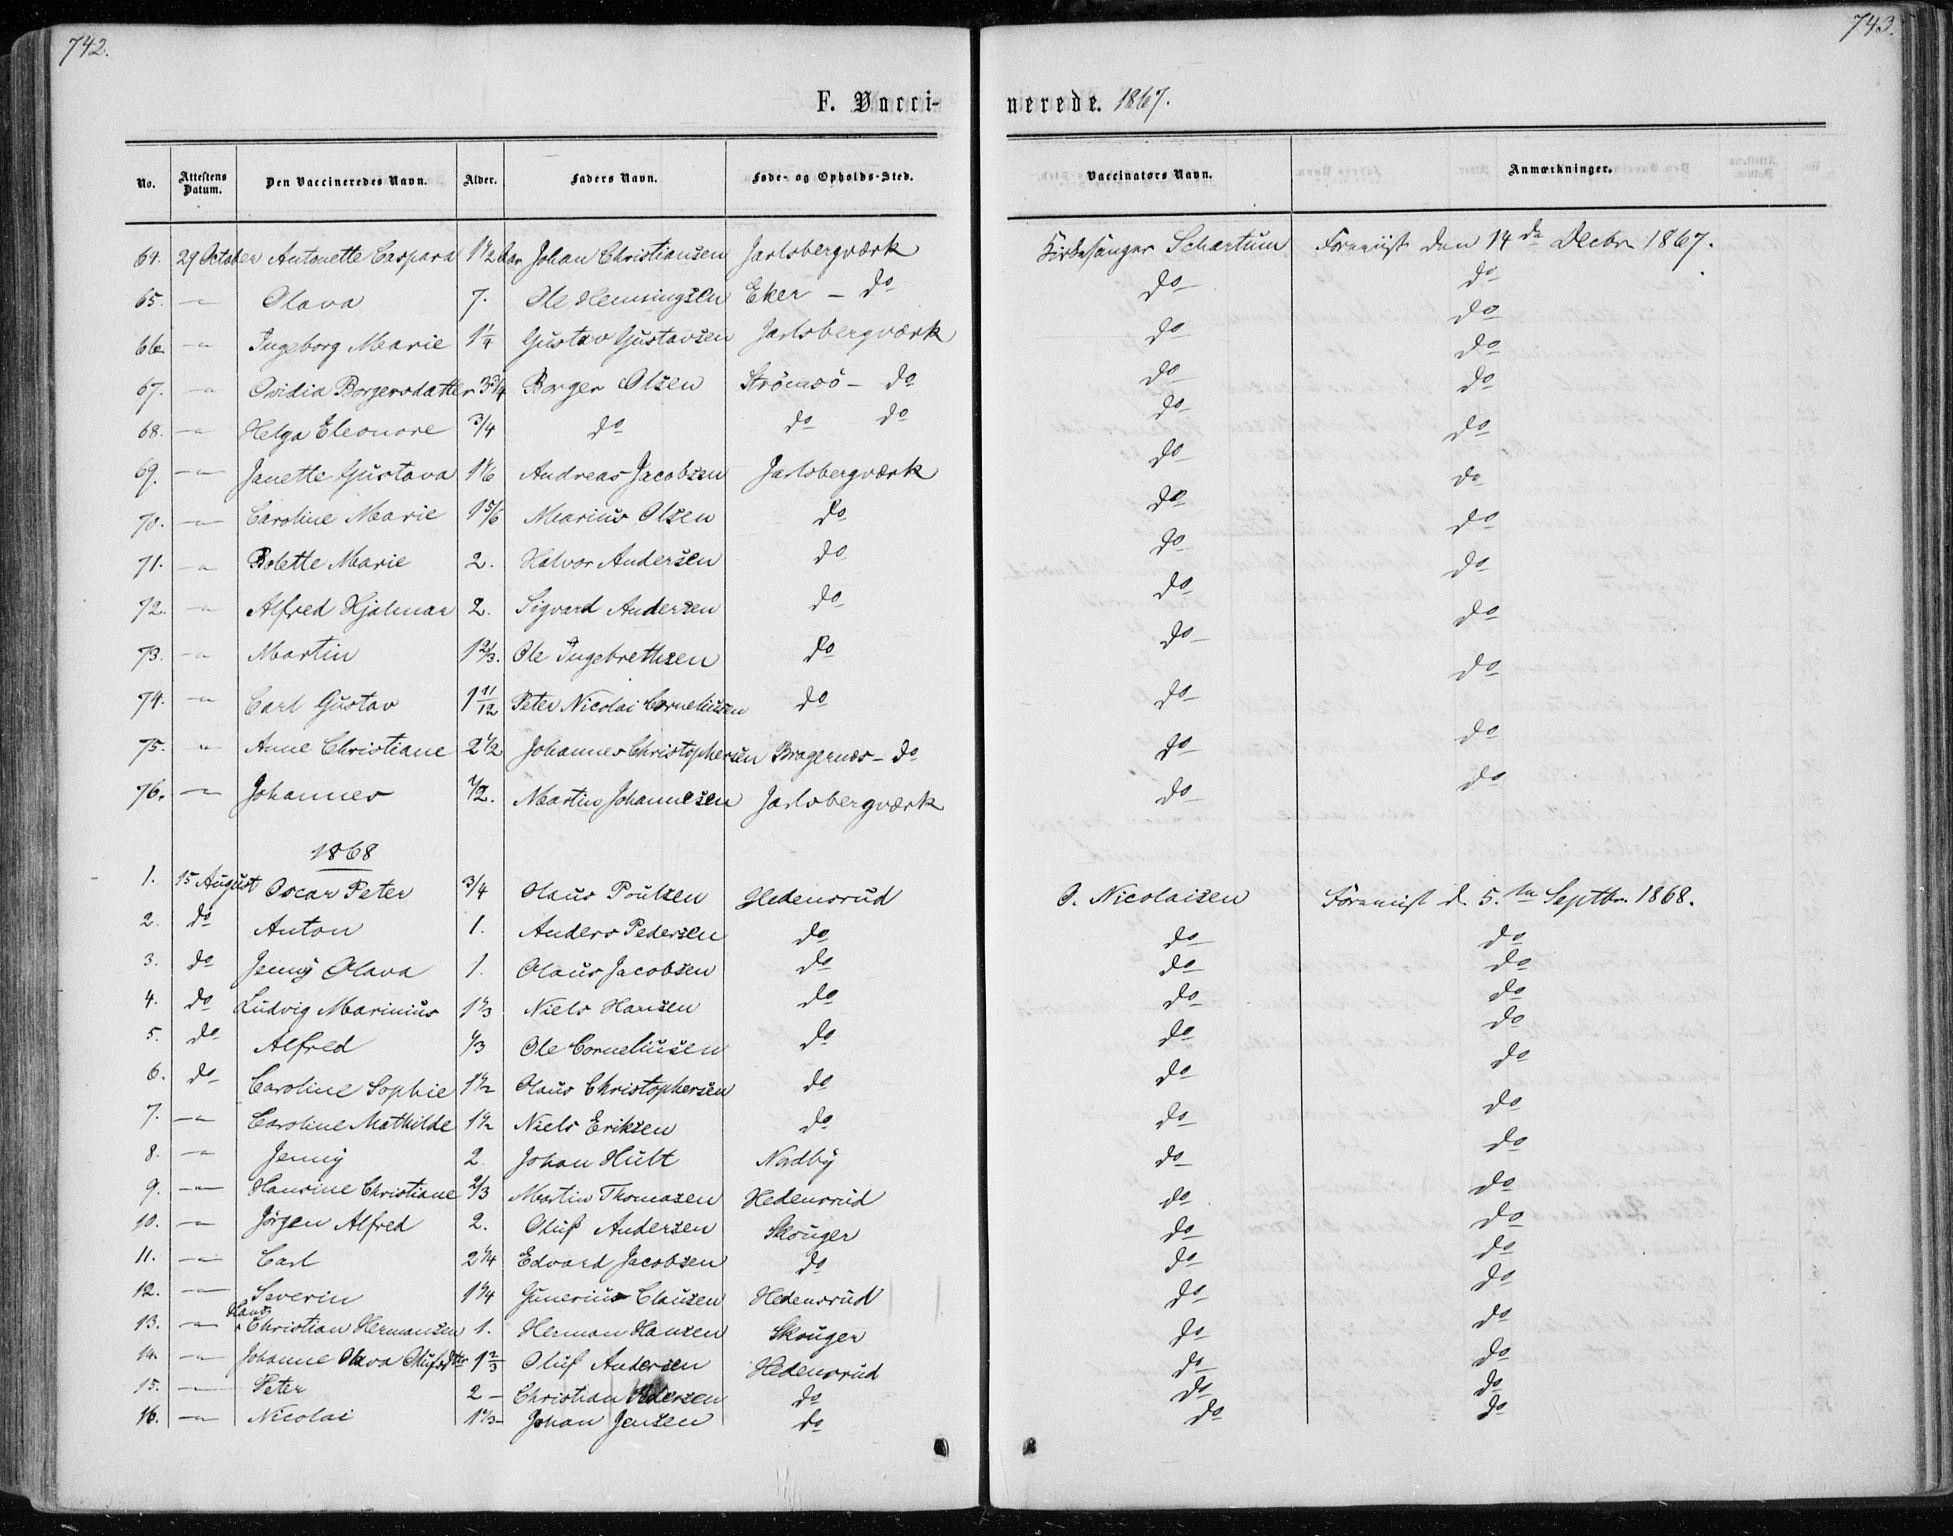 742.
743.
F. Vacci-
nerede. 1867.
No. Attestens Datum. Den Vaccineredes Navn. Alder. Faders Navn. Føde- og Opholds-Sted. Vaccinators Navn. Anmærkninger.
64. 29 October Antonette Caspara 1 1/2 Aar Johan Christiansen Jarlsbergværk Kirkesanger Schartum Foreviist den 14de Decbr 1867.
65. -"- Olava 7. Ole Hemingsen Eker - do do do
66. -"- Ingeborg Marie 1 1/4 Gustav Gustavsen Jarlsbergværk do do
67. -"- Ovidia Borgersdatter 3 3/4 Borger Olsen Strømsö - do do do
68. -"- Helga Eleonore 3/4 do do do do do
69. -"- Janette Gustava 1 1/6 Andreas Jacobsen Jarlsbergværk do do
70. -"- Caroline Marie 1 5/6 Marius Olsen do do do
71. -"- Bolette Marie 2. Halvor Andersen do do do
72. -"- Alfred Hjalmar 2. Sigvard Andersen do do do
73. -"- Martin 1 2/3. Ole Ingebrethsen do do do
74. -"- Carl Gustav 1 11/12 Peter Nicolai Corneliusen do do do
75. " Anne Christiane 2 1/2 Johannes Christophersen Bragernæs - do do do
76. -"- Johannes 1/2. Martin Johannesen Jarlsbergværk do do
1868
1. 15 August Oscar Peter 3/4 Olaus Poulsen Hedensrud O. Nicolaisen Foreviist d. 5.te Septbr. 1868.
2. do Anton 1. Anders Pedersen do do do
3. do Jenny Olava 1. Olaus Jacobsen do do do
4. do Ludvig Marinius 1 1/3 Niels Hansen do do do
5. do Alfred 1/3 Ole Corneliusen do do do
6. do Caroline Sophie 1 1/2 Olaus Christophersen do do do
7. -"- Caroline Mathilde 1 1/2 Niels Eriksen do do do
8. -"- Jenny 2. Johan Hult Nordby do do
9. -"- Hansine Christiane 2/3 Martin Thomasen Hedensrud do do
10. -"- Jörgen Alfred 2. Oluf Andersen Skouger do do
11. -"- Carl 2 1/4 Edvard Jacobsen do do do
12. -"- Severin 1 1/4 Gunerius Clausen Hedensrud do do
13. -"- Hans Christian Hermansen 1. Herman Hansen Skouger do do
14. -"- Johanne Olava Olufsdtr 1 2/3 Oluf Andersen Hedensrud do do
15. -"- Peter 2 - Christian Pedersen do do do
16. -"- Nicolai 1 1/3 - Johan Jensen do do do